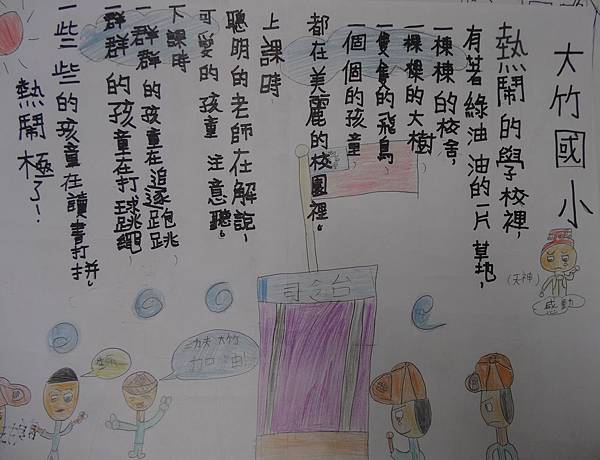 大竹國小
熱鬧的學校裡，
有著綠油油的一片草地，
一棟棟的校舍，
一棵棵的大樹
一隻隻的飛鳥
一個個的孩童
都在美麗的校園裡。
上課時
聰明的老師在解說，
可愛的孩童 注意聽。
下課時
一群群的孩童在追逐跑跳
一群群的孩童在打球跳繩
一些些的孩童在讀書打拼。
熱鬧極了！
(天神)
感動
司令台
大竹
加油